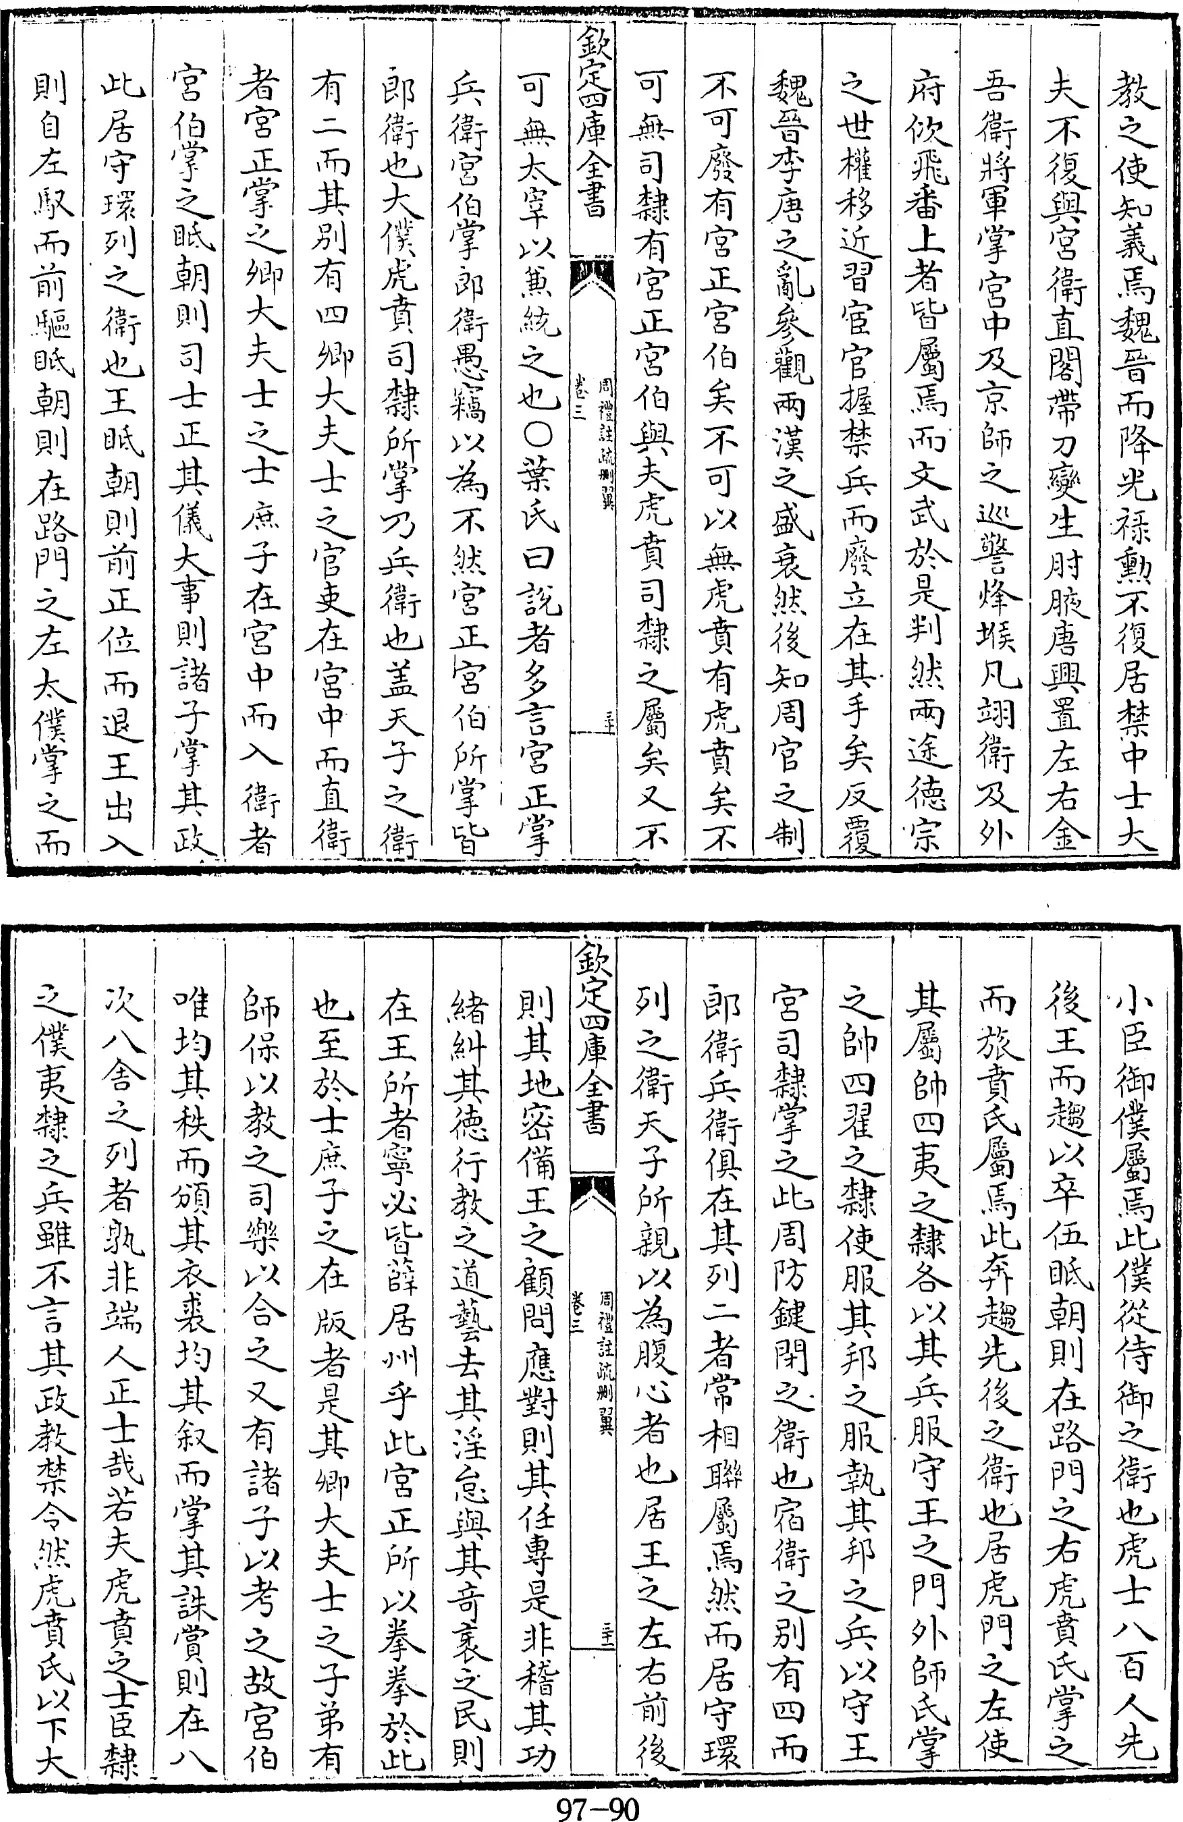 教之使知義焉魏晉而降光祿勳不復居禁中士大
夫不復與宮衛直閣帶刀變生肘腋唐興置左右金
吾衛將軍掌宮中及京師之巡警烽堠凡翊衛及外
府佽飛番上者皆屬焉而文武於是判然兩途德宗
之世權移近習宦官握禁兵而廢立在其手矣反覆
魏晉李唐之亂參觀兩漢之盛衰然後知周官之制
不可廢有宮正宮伯矣不可以無虎賁有虎賁矣不
可無司隸有宮正宮伯與夫虎賁司隸之屬矣又不
欽定四庫全書
周禮註疏刪翼
卷三
三十
可無太宰以兼統之也○葉氏曰說者多言宮正掌
兵衛宮伯掌郎衛愚竊以為不然宮正宮伯所掌皆
郎衛也大僕虎賁司隸所掌乃兵衛也盖天子之衛
有二而其別有四卿大夫士之官吏在宮中而直衛
者宮正掌之卿大夫士之士庶子在宮中而入衛者
宮伯掌之眂朝則司士正其儀大事則諸子掌其政
此居守環列之衛也王眂朝則前正位而退王出入
則自左馭而前驅眂朝則在路門之左太僕掌之而
小臣御僕屬焉此僕從侍御之衛也虎士八百人先
後王而趨以卒伍眂朝則在路門之右虎賁氏掌之
而旅賁氏屬焉此奔趨先後之衛也居虎門之左使
其屬帥四夷之隸各以其兵服守王之門外師氏掌
之帥四翟之隸使服其邦之服執其邦之兵以守王
宮司隸掌之此周防鍵閉之衛也宿衛之別有四而
郎衛兵衛俱在其列二者常相聯屬焉然而居守環
列之衛天子所親以為腹心者也居王之左右前後
欽定四庫全書
周禮註疏刪翼
卷三
三十一
則其地密備王之顧問應對則其任專是非稽其功
緒糾其德行教之道藝去其淫怠與其奇衺之民則
在王所者寧必皆薛居州乎此宮正所以拳拳於此
也至於士庶子之在版者是其卿大夫士之子弟有
師保以教之司樂以合之又有諸子以考之故宮伯
唯均其秩而頒其衣裘均其叙而掌其誅賞則在八
次八舍之列者孰非端人正士哉若夫虎賁之士臣隸
之僕夷隸之兵雖不言其政教禁令然虎賁氏以下大
97-90